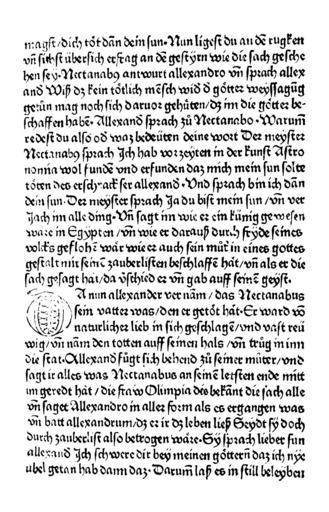 magst/dich töt dan̄ dein sun·Nun ligest du an dē rugken
vn̄ sihst übersich erstag an dē gestÿrn wie die sach gesche
hen sey·Nectanabꝰ antwurt allexandro vn̄ sprach allex
and Wiß dz kein tötlich mēsch wid d götter weyssagūg
getūn mag noch sich daruor gehüten/dz im die götter be-
schaffen habē·Allexand sprach zů Nectanabo·Warum̄
redest du also od waz bedeüten deine wort Der meyster
Nectanabꝰ sprach Jch hab vorzeyten in der kunst Astro
nomia wol fundē vnd erfunden daz mich mein sun solte
töten des ersch· allexand·Vnd sprach bin ich dan̄
dein sun·Der meyster sprach Ja du bist mein sun/vn̄ ver
Jach im alle ding·Vn̄ sagt im wie er ein künig gewesen
ware in Egypten/vn̄ wie er darauß durch seines
volcks geflohē wār wie er auch sein můt in eines gottes
gestalt mit seinē zauberlisten beschlaffē hāt/vn̄ als er die
sach gesagt hāt/da vschied er vn̄ gab auff seinē geyst·
DA nun allexander ver nam/das Nectanabus
sein vatter was/den er getöt hāt·Er ward vō
naturlicher lieb in sich geschlagē/vnd vast reü
wig/vn̄ nam den totten auff seinen hals/vn̄ trůg in inn
die stat·Allexand fügt sich behend zů seiner můter/vnd
sagt ir alles was Nectanabus an seinē letsten ende mitt
im geredt hāt/die fraw Olimpia des bekānt die sach alle
vn̄ saget Allexandro in aller form als es ergangen was
vn̄ batt allexandrum/dz er ir dz leben ließ Seydt sy doch
durch zauberlist also betrogen wāre·Sy sprach lieber sun
allexand Jch schwere dir bey meinen göttern daz ich nye
übel getan hab dann daz·Darum̄ laß es in still beleyben